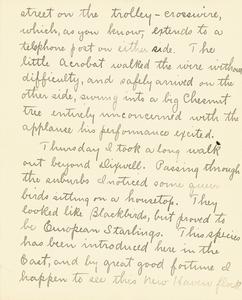 street on the trolley-crosswire,
which, as you know, extends to a
telephone port on either side. The
little Acrobat walked the wire without
difficulty, and safely arrived on the
other side, swung into a big Chesnut
tree entirely unconcerned with the
applause his performance excited.
Thursday I took a long walk
out beyond Dixwell. Passing through
the suburbs I noticed some queer
birds sitting on a housetop. They
looked like Blackbirds, but proved to
be European Starlings. This species
has been introduced here in the
East, and by great good fortune I
happen to see this New Haven flock